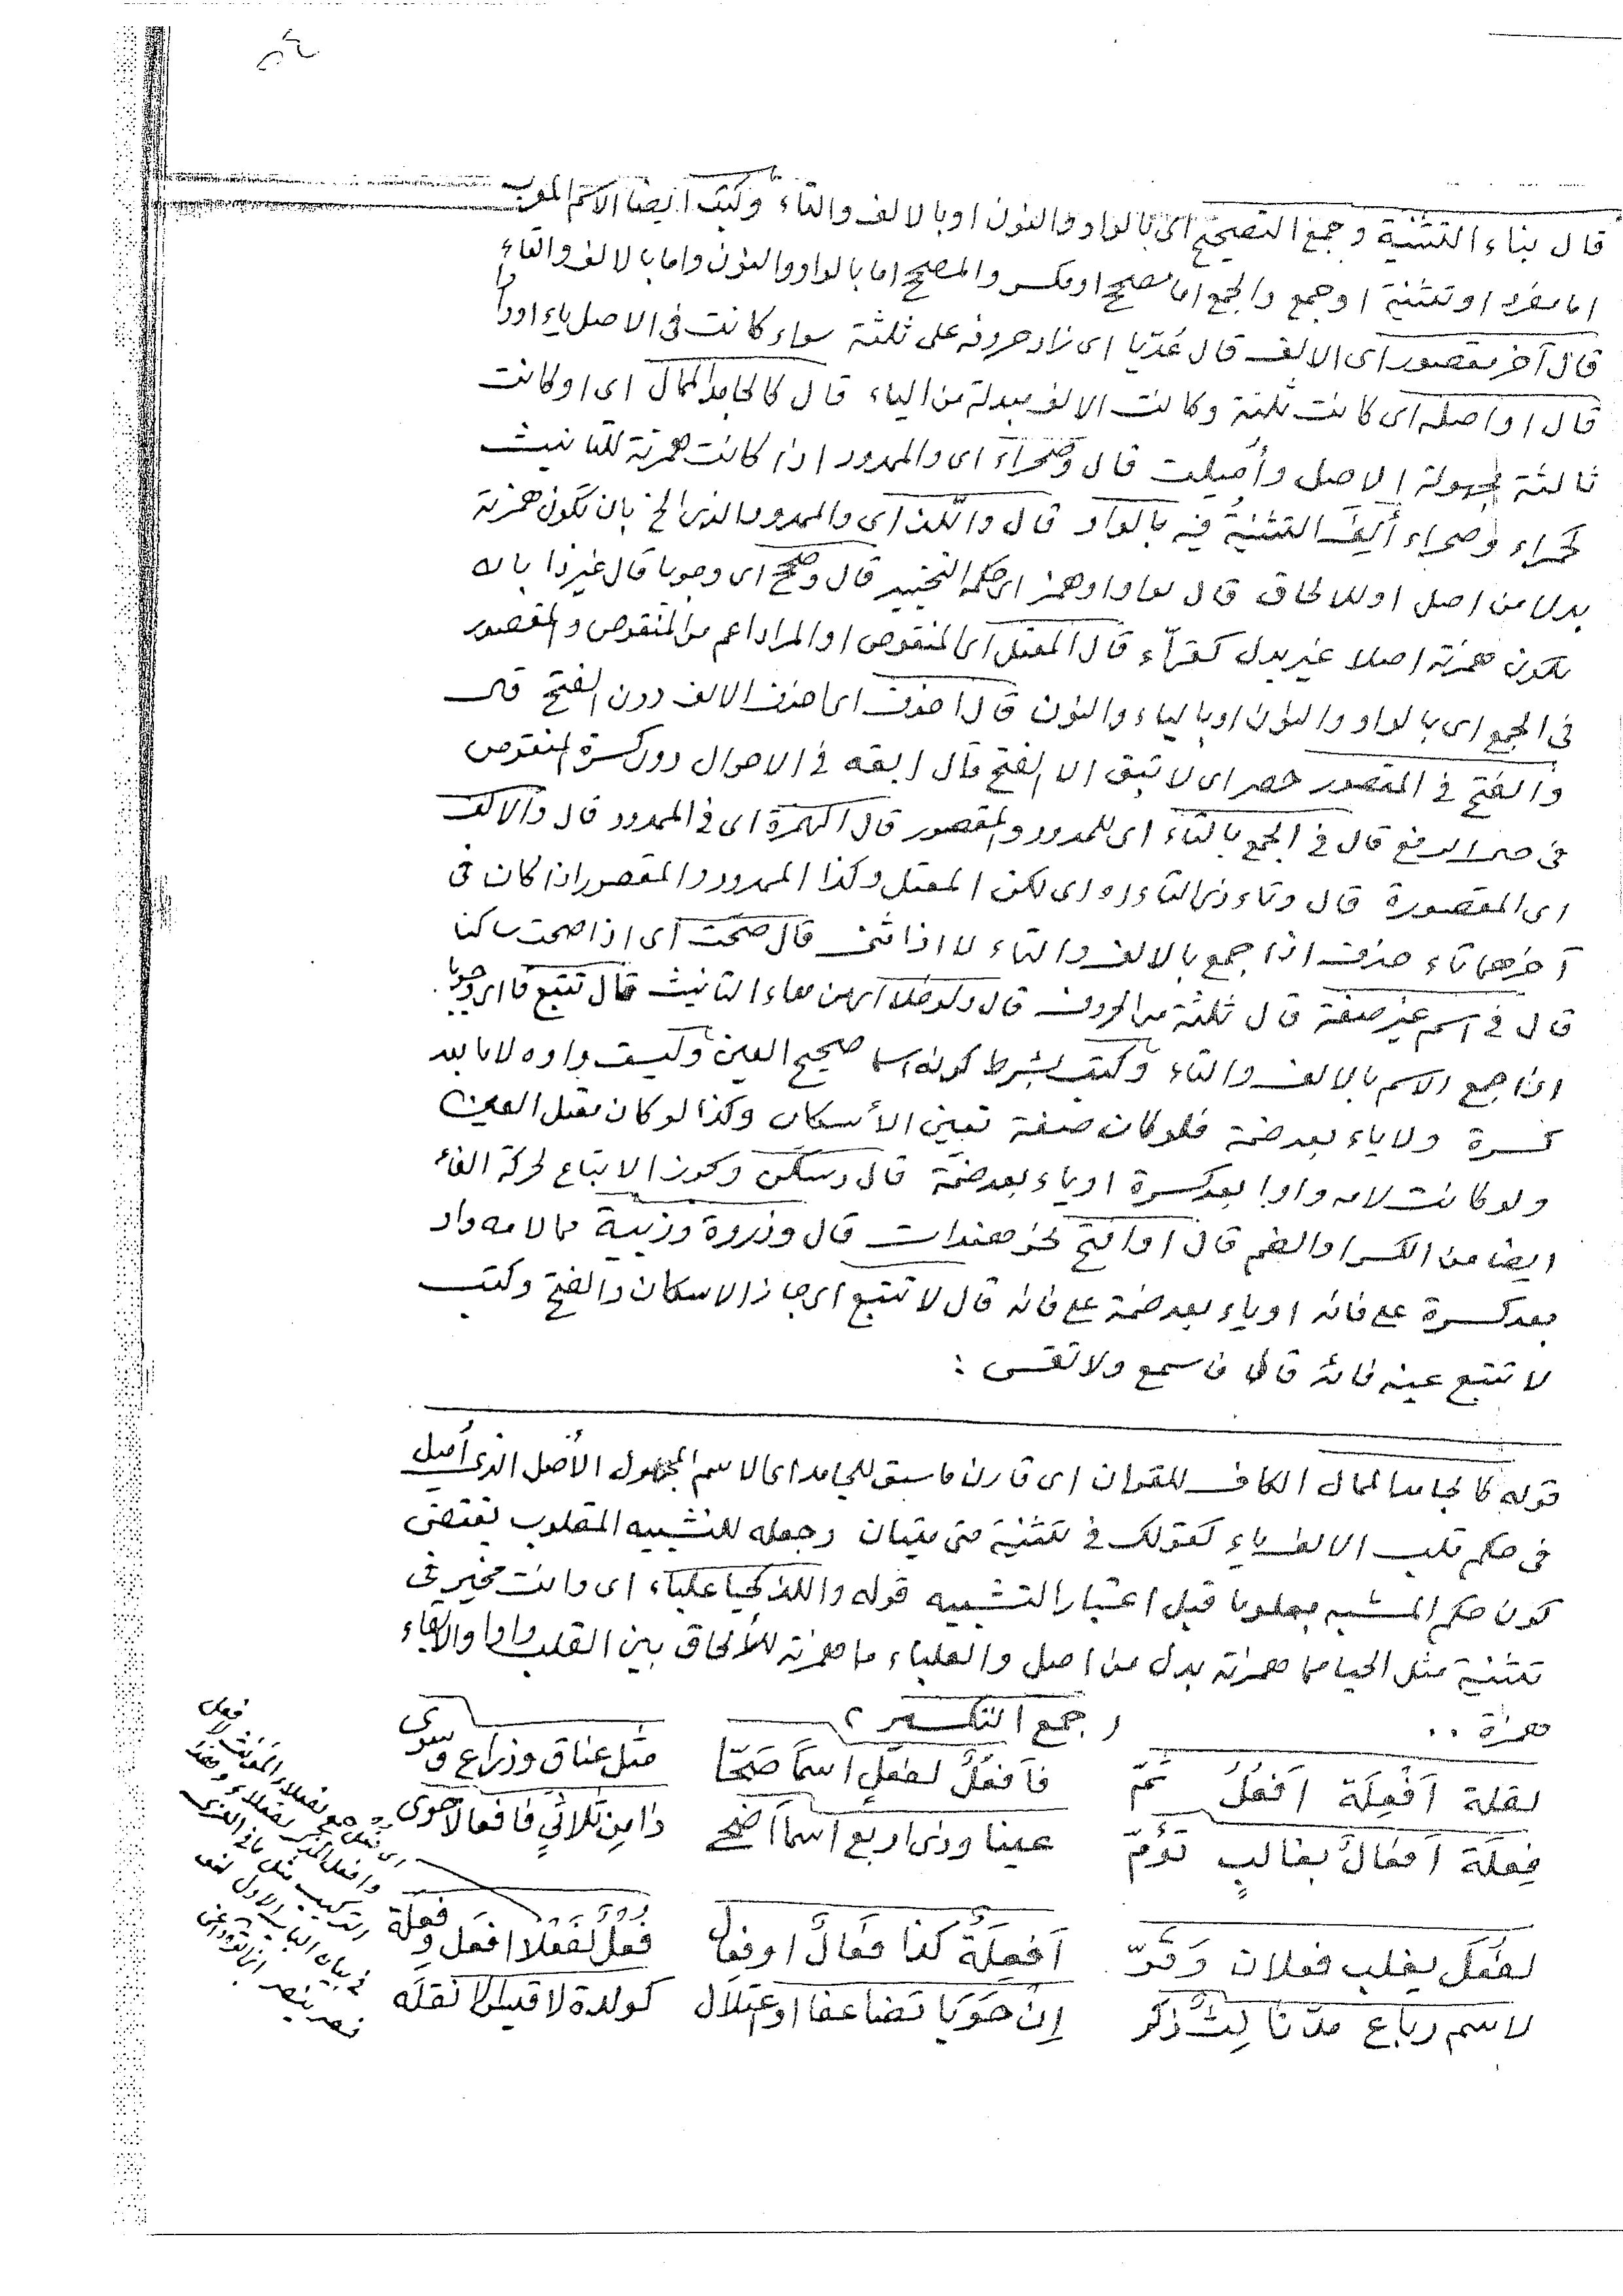 قال بناء التثنية وجمع التصحيح اى بالواو والنون او بالالف والتاء وكتب ايضا الاسم المعرب
اما مفرد او تثنية او جمع والجمع اما مصحح او مكسر والمصحح اما بالواو والنون واما بالالف والتاء
قال آخر مقصور اى الالف قال عُدّيا اى زاد حروفه على ثلثة سواء كانت فى الاصل ياء او واوا
قال او اصله اى كانت ثلثة وكانت الالف مبدلة من الياء قال كالجامد الممال اى او كانت
ثالثة مجهولة الاصل وأميلت قال وصحراء اى والممدود اذا كانت همزته للتأنيث
كحمراء وصحراء أَلِفَ التثنيةُ فيه بالواو قال والّلذ اى والممدود الذى الخ بان تكون همزته
بدلا من اصل او للالحاق قال بواو او همز اى حكمه التخيير قال وصحح اى وجوبا قال غير ذا بان
يكون همزته اصلا غير بدل كقرآء قال المعتل اى المنقوص او المراد اعم من المنقوص والمقصور
فى الجمع اى بالواو والنون او بالياء والنون قال احذف اى احذف الالف دون الفتح قال
والفتح فى المقصور حصر اى لا تبق الا الفتح قال ابقه فى الاحوال دون كسرة المنقوص
فى حال الرفع قال فى الجمع بالتاء اى للممدود والمقصور قال الهمزة اى فى الممدود قال والالف
اى المقصورة قال وتاء ذى التاء اه اى لكن المعتل وكذا الممدود والمقصور اذا كان فى
آخرهما تاء حذفت اذا جمع بالالف والتاء لا اذا ثنى قال صحت اى اذا صحت ساكنا
قال فى اسم غير صفة قال ثلثة من الحروف قال ولو خلا اى من هاء التأنيث قال تتبع فا اى وجوبا
اذا جمع الاسم بالالف والتاء وكتب بشرط كونه اسما صحيح العين وليست واوه لاما بعد
كسرة ولا ياء بعد ضمة فلو كان صفة تعين الأسكان وكذا لو كان معتل العين
ولو كانت لامه واوا بعد كسرة او ياء بعد ضمة قال وسكن ويجوز الاتباع لحركة الفاء
ايضا من الكسر او الضم قال او افتح نحو هندات قال وذروة وزبية مما لامه واو
بعد كسرة على فائه او ياء بعد ضمة على فائه قال لا تتبع اى جاز الاسكان والفتح وكتب
لا تتبع عينه فائه قال فاسمع ولا تقس :
قوله كالجامد الممال الكاف للقران اى قارن ما سبق للجامد اى الاسم المجهول الأصل الذى أميل
فى حكم قلب الالف ياء كقولك فى تثنية متى متيان وجعله للتشبيه المقلوب يقتضى
كون حكم المشبه معلوما قبل اعتبار التشبيه قوله واللذ كحيا علباء اى وانت مخير فى
تثنية مثل الحيا مما همزته بدل من اصل والعلباء مما همزته للألحاق بين القلب واوا والابقاء
همزة ..
( جمع التكسير )
لقلة اَفْعِلَة اَفْعُلُ ثمّ
فافعُلُ لفعلٍ اسمًا صَحّا
مثل عناق وذراع وسوى
فِعلَة اَفعالُ بغالبٍ تَؤُمّ
عينا وذى اربع اسمًا اضحى
ذا مِن ثلاثيٍ فافعالا حوى
لفُعَل يغلب فعلان وَقَرّ
اَفعِلَةُ كذا فَعالُ او فِعال
فُعْلُ لفَعْلا افعَل وفعلة
لاسم رباع مدّ ثالث ذكر
اِن حَوَيا تضاعفا او اعتلال
كولدة لا قيس لا نقله